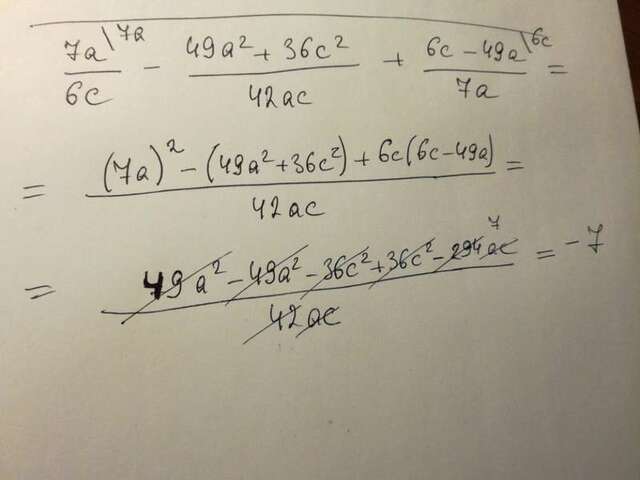 7a\7a / 6c − 49a² + 36c² / 42ac + 6c − 49a\6c / 7a =
= (7a)² − (49a² + 36c²) + 6c(6c − 49a) / 42ac =
= 49a² − 49a² − 36c² + 36c² − 294ac 7 / 42ac = −7